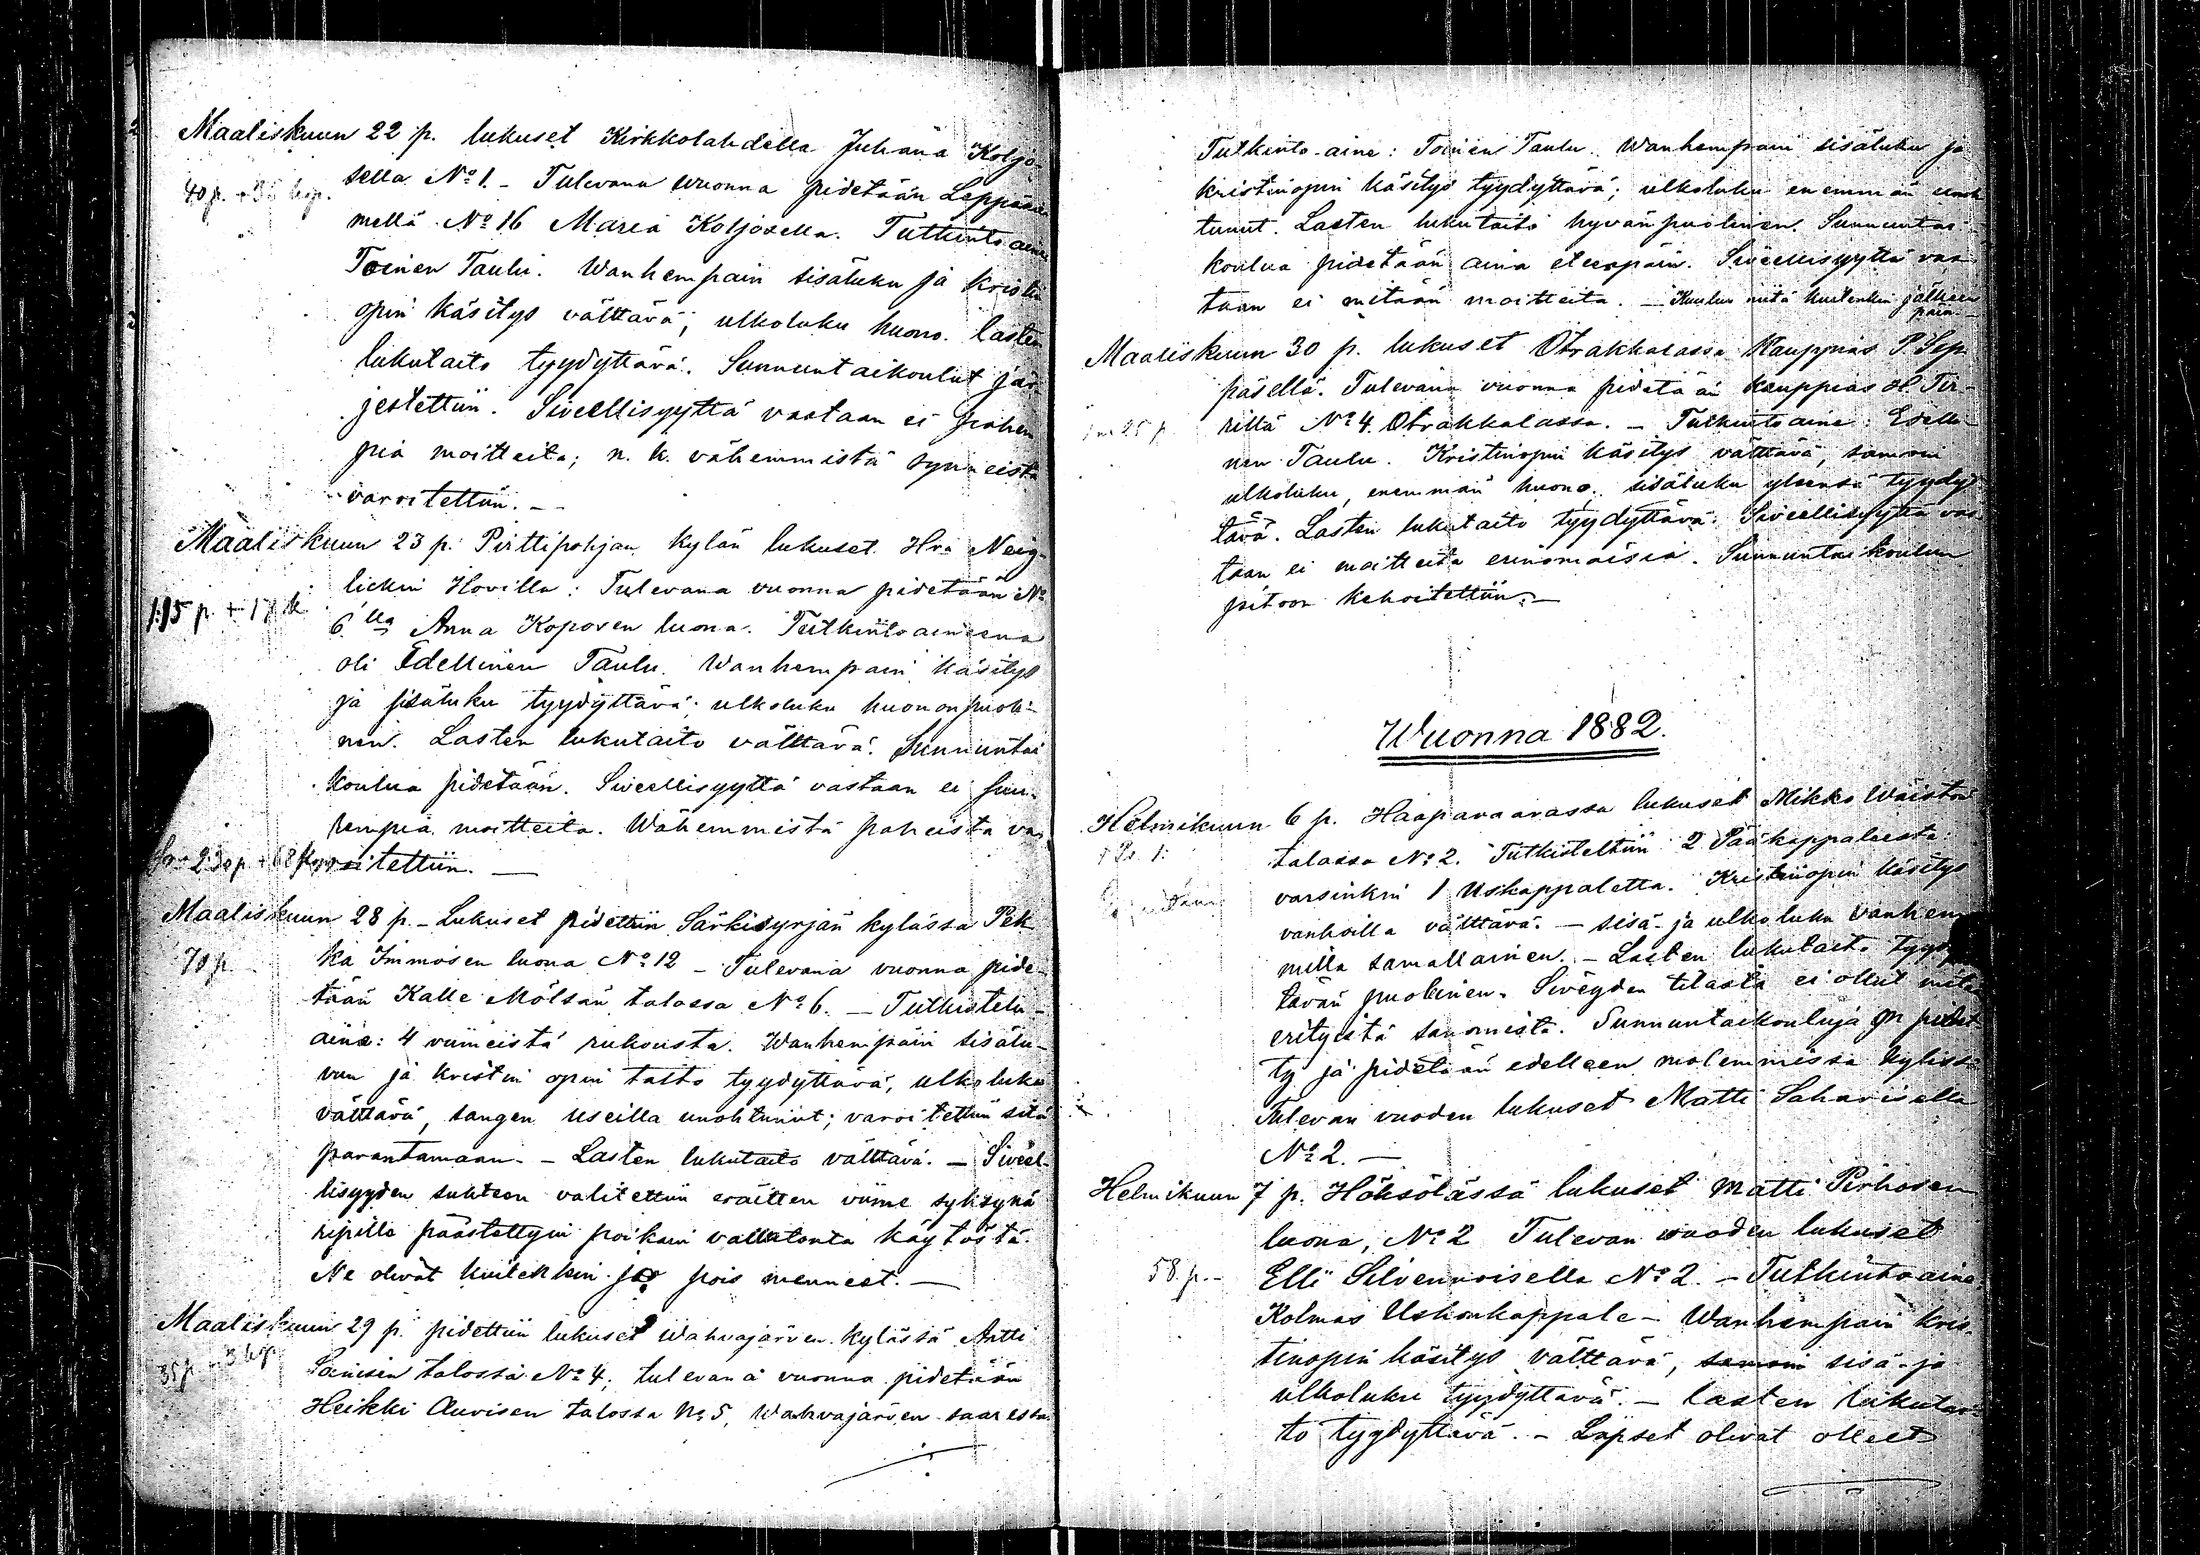 Maaliskuun 22 p. lukuset Kirkkolahdella Juhana Koljo-
40 p.
sella No 1. - Tulevana vuonna pidetään Leppäsel-
mellä No 16 Maria Koljosella. Tutkinto aine
Toinen Taulu. Wanhempain sisäluku ja kristin
opin käsitys välttävä; ulkoluku huono. Lasten
lukutaito tyydyttävä. Sunnuntaikoulut jär-
jestettiin. Siveellisyyttä vastaan ei pahem
pia moitteita; n. k. vähemmistä synneistä
varoitettiin. -
Maaliskuun 23 p. Pirttipohjan kylän lukuset Hra Neig-
lickin Hovilla: Tulevana vuonna pidetään No
6 lla Anna Koposen luona. Tutkintoaineena
oli Edellinen Taulu. Wanhempain käsitys
ja sisäluku tyydyttävä; ulkoluku huononpuoli-
nen. Lasten lukutaito välttävä. Sunnuntai
koulua pidetään. Siveellisyyttä vastaan ei suu-
rempia moitteita. Wähemmistä paheista va-
roitettiin. —
Maaliskuun 28 p. - Lukuset pidettiin Särkisyrjän kylässä Pek
70 p.
ka Immosen luona No 12 - Tulevana vuonna pide-
tään Kalle Mölsän talossa No 6. — Tutkistelu-
aine: 4 viimeistä rukousta. Wanhempain sisälu-
vun ja kristin opin taito tyydyttävä, ulkoluku
välttävä, sangen useilla unohtunut; varoitettiin sitä
parantamaan. - Lasten lukutaito välttävä. — Siveel-
lisyyden suhteen valitettiin eräitten viime syksynä
ripille päästettyin poikain vallatonta käytöstä.
Ne olivat kuitenkin jo pois menneet. —
Maaliskuun 29 p. pidettiin lukuset Wahvajärven kylässä Antti
35 p.
Sairisen talossa No 4, tulevana vuonna pidetään
Heikki Auvisen talossa No 5, Wahvajärven saaressa.
Tutkinto-aine: Toinen Taulu. Wanhempain sisäluku ja
kristinopin käsitys tyydyttävä; ulkoluku enemmän unoh
tunut. Lasten lukutaito hyvänpuolinen. Sunnuntai-
koulua pidetään aina eteenpäin. Siveellisyyttä vas
taan ei mitään moitteita. — Kuului niitä kuitenkin jälkeen
päin. -
Maaliskuun 30 p. lukuset Otrakkalassa Kauppias P. Sep-
päsellä. Tulevana vuonna pidetään kauppias H. Tir-
25 p.
rillä No 4. Otrakkalassa. — Tutkintoaine: Edelli-
nen Taulu. Kristinopin käsitys välttävä, samoin
ulkoluku, enemmän huono; sisäluku yleensä tyydyt
tävä. Lasten lukutaito tyydyttävä. Siveellisyyttä vas-
taan ei moitteita erinomaisia. Sunnuntaikoulun
pitoon kehoitettiin. —
Wuonna 1882.
Helmikuun 6 p. Haapavaarassa lukuset Mikko Wäistön
talossa No 2. Tutkisteltiin 2 Pääkappaleesta
varsinkin 1 Uskappaletta. Kristinopin käsitys
vanhoilla välttävä. — sisä- ja ulkoluku vanhem
milla samallainen. - Lasten lukutaito tyydyt
tävän puolinen. Siveyden tilasta ei ollut mitään
erityistä sanomista. Sunnuntaikouluja on pidet
ty ja pidetään edelleen molemmissa kylissä
Tulevan vuoden lukuset Matti Saharisella
No 2. —
Helmikuun 7 p. Höksölässä lukuset Matti Pirhosen
luona, No 2 Tulevan vuoden lukuset
58 p. -
Elli Silvennoisella No 2. - Tutkintoaine
Kolmas Uskonkappale - Wanhempain kris-
tinopin käsitys välttävä, samoin sisä- ja
ulkoluku tyydyttävä. - Lasten lukutai-
to tyydyttävä. - Lapset olivat olleet